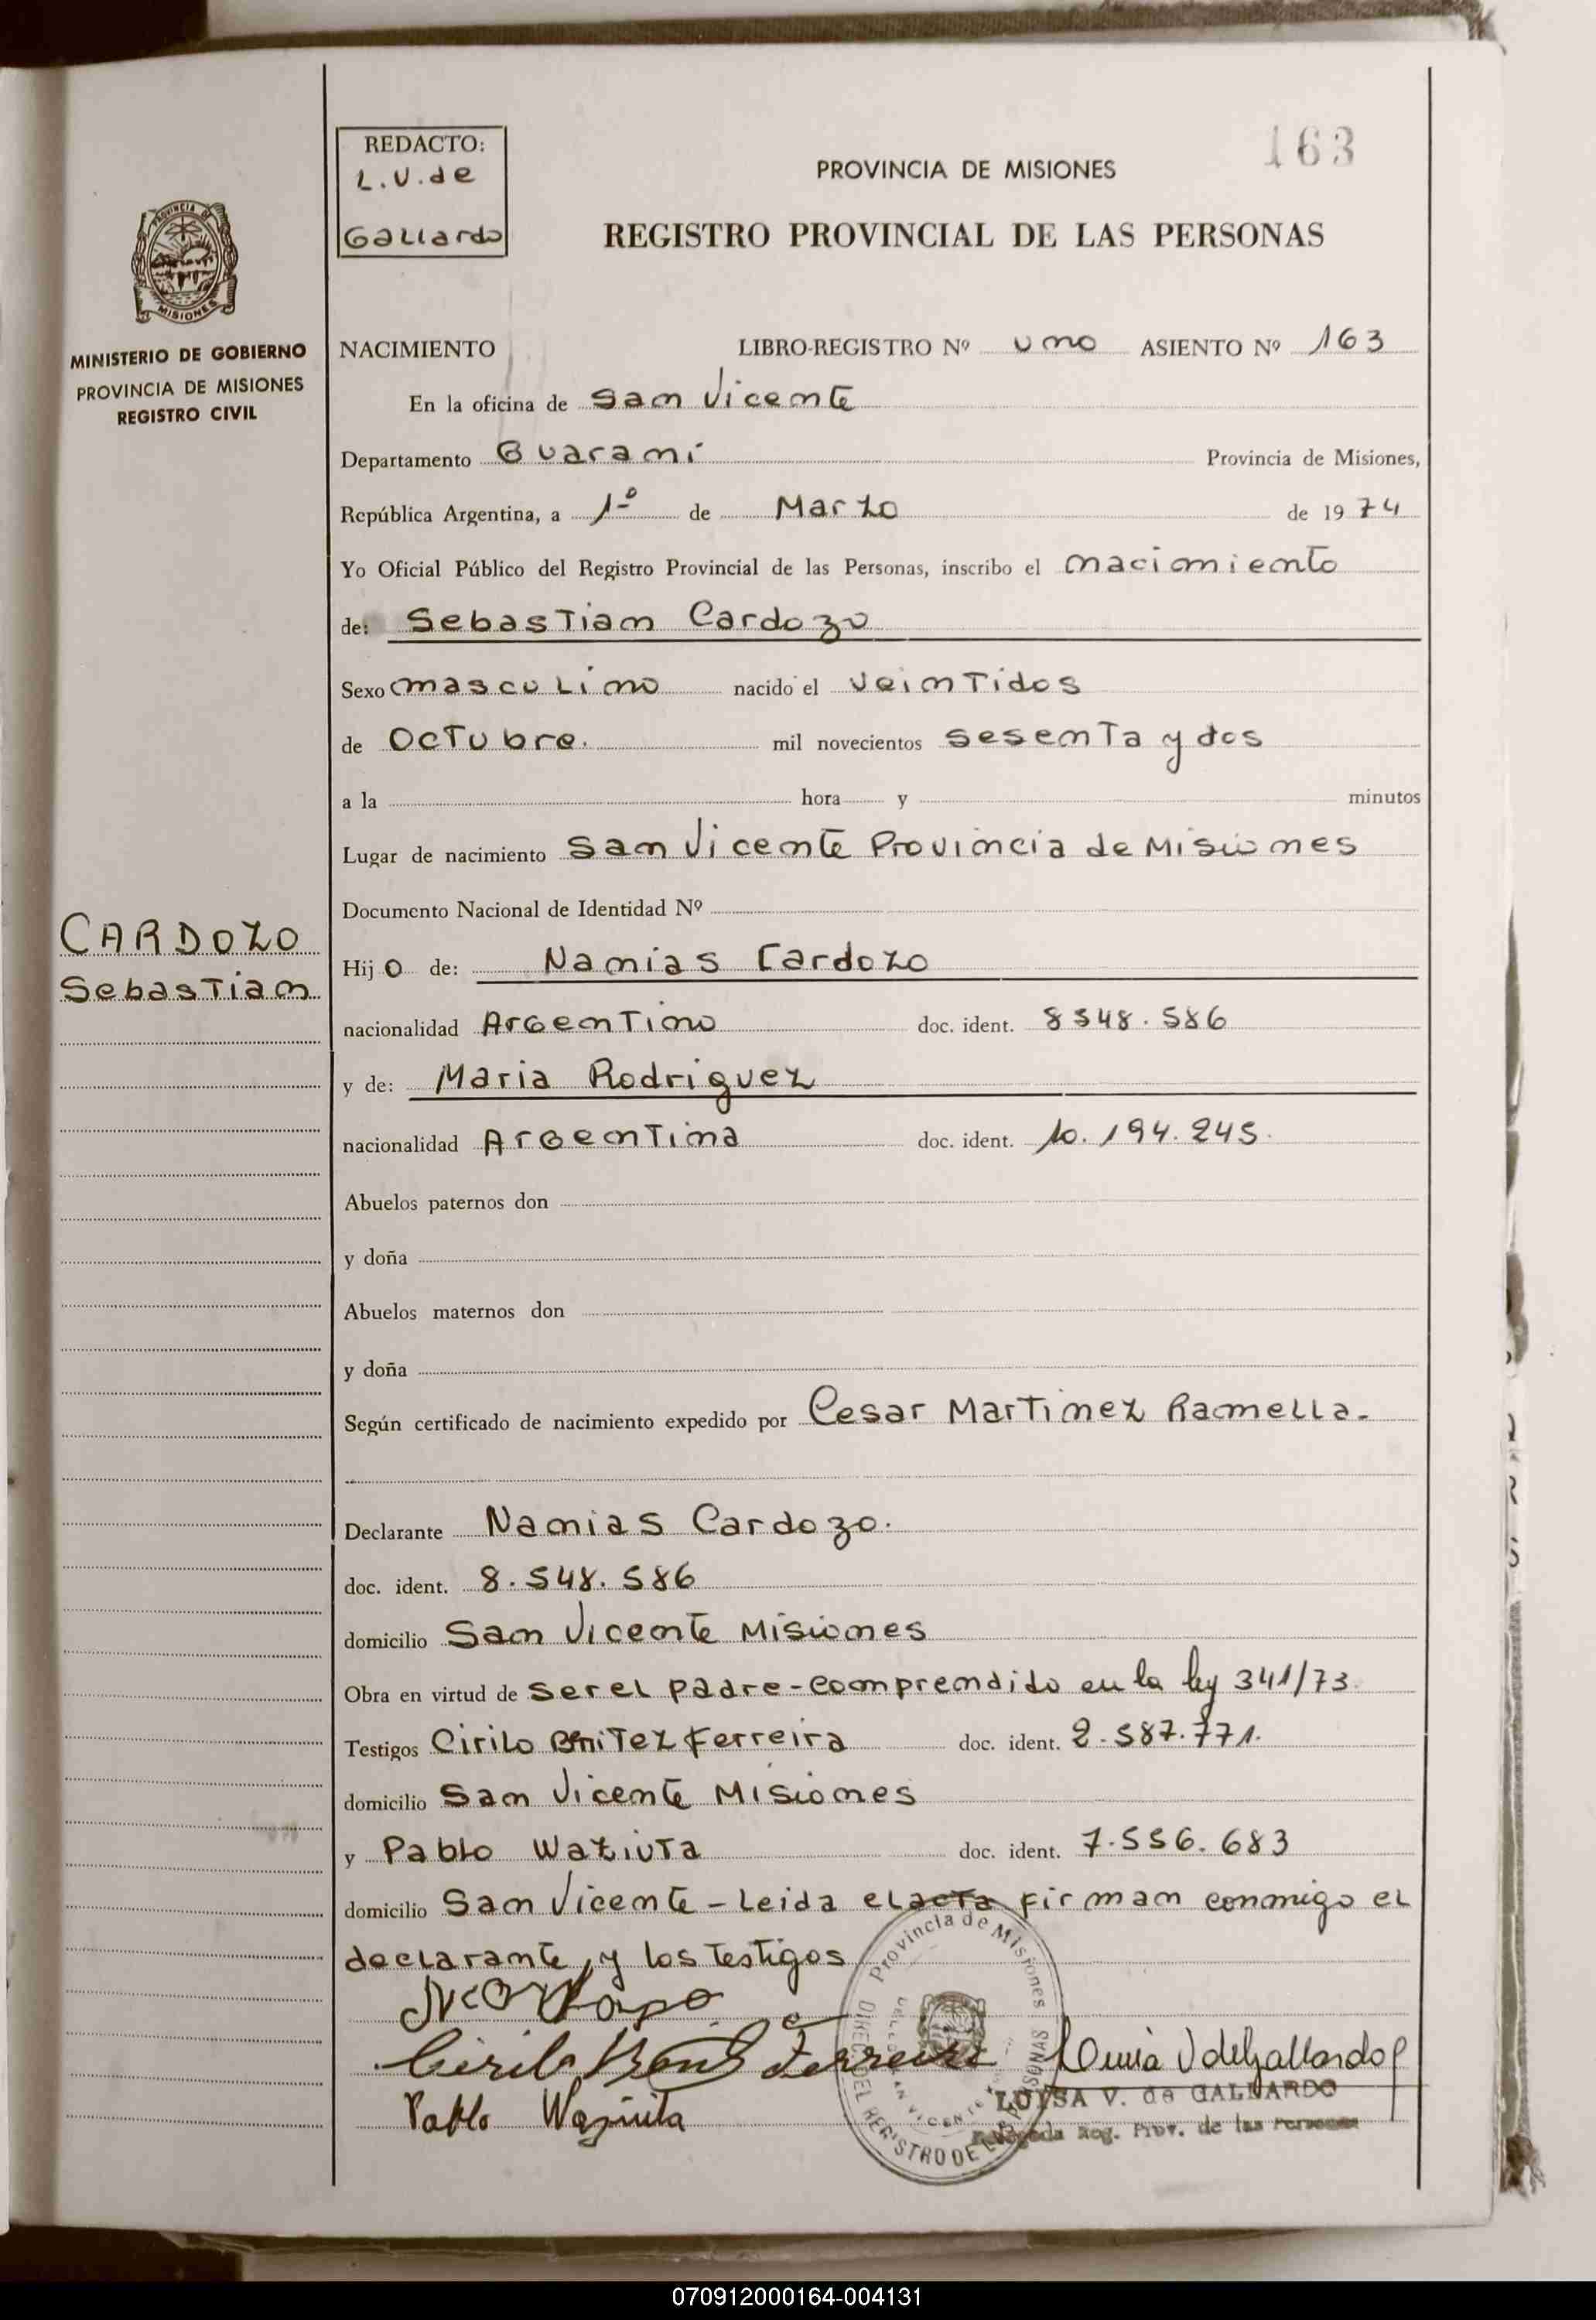 163
REDACTO:
L.V.de
Gallardo
PROVINCIA DE MISIONES
REGISTRO PROVINCIAL DE LAS PERSONAS
PROVINCIA DE
MISIONES
MINISTERIO DE GOBIERNO
PROVINCIA DE MISIONES
REGISTRO CIVIL
NACIMIENTO LIBRO-REGISTRO Nº uno ASIENTO Nº 163
En la oficina de San Vicente
Departamento Guarani Provincia de Misiones,
República Argentina, a 1º de Marzo de 1974
Yo Oficial Público del Registro Provincial de las Personas, inscribo el nacimiento
de: Sebastian Cardozo
Sexo masculino nacido el veintidos
de Octubre. mil novecientos sesenta y dos
a la hora y minutos
Lugar de nacimiento San Vicente Provincia de Misiones
Documento Nacional de Identidad Nº
CARDOZO
Sebastian
Hijo de: Nanias Cardozo
nacionalidad Argentino doc. ident. 8548.586
y de: Maria Rodriguez
nacionalidad Argentina doc. ident. 10.194.245.
Abuelos paternos don
y doña
Abuelos maternos don
y doña
Según certificado de nacimiento expedido por Cesar Martinez Ramella.
Declarante Nanias Cardozo.
doc. ident. 8.548.586
domicilio San Vicente Misiones
Obra en virtud de ser el padre - comprendido en la ley 341/73.
Testigos Cirilo Bnitez Ferreira doc. ident. 2.587.771.
domicilio San Vicente Misiones
y Pablo Waziuta doc. ident. 7.556.683
domicilio San Vicente - Leida el acta firman conmigo el
declarante, y los testigos
Provincia de Misiones
DIREC. DEL REGISTRO DE LAS PERSONAS
SAN VICENTE
Cirilo Ferreira
Pablo Waziuta
LUISA V. de GALLARDO
Delegada Reg. Prov. de las Personas
070912000164-004131